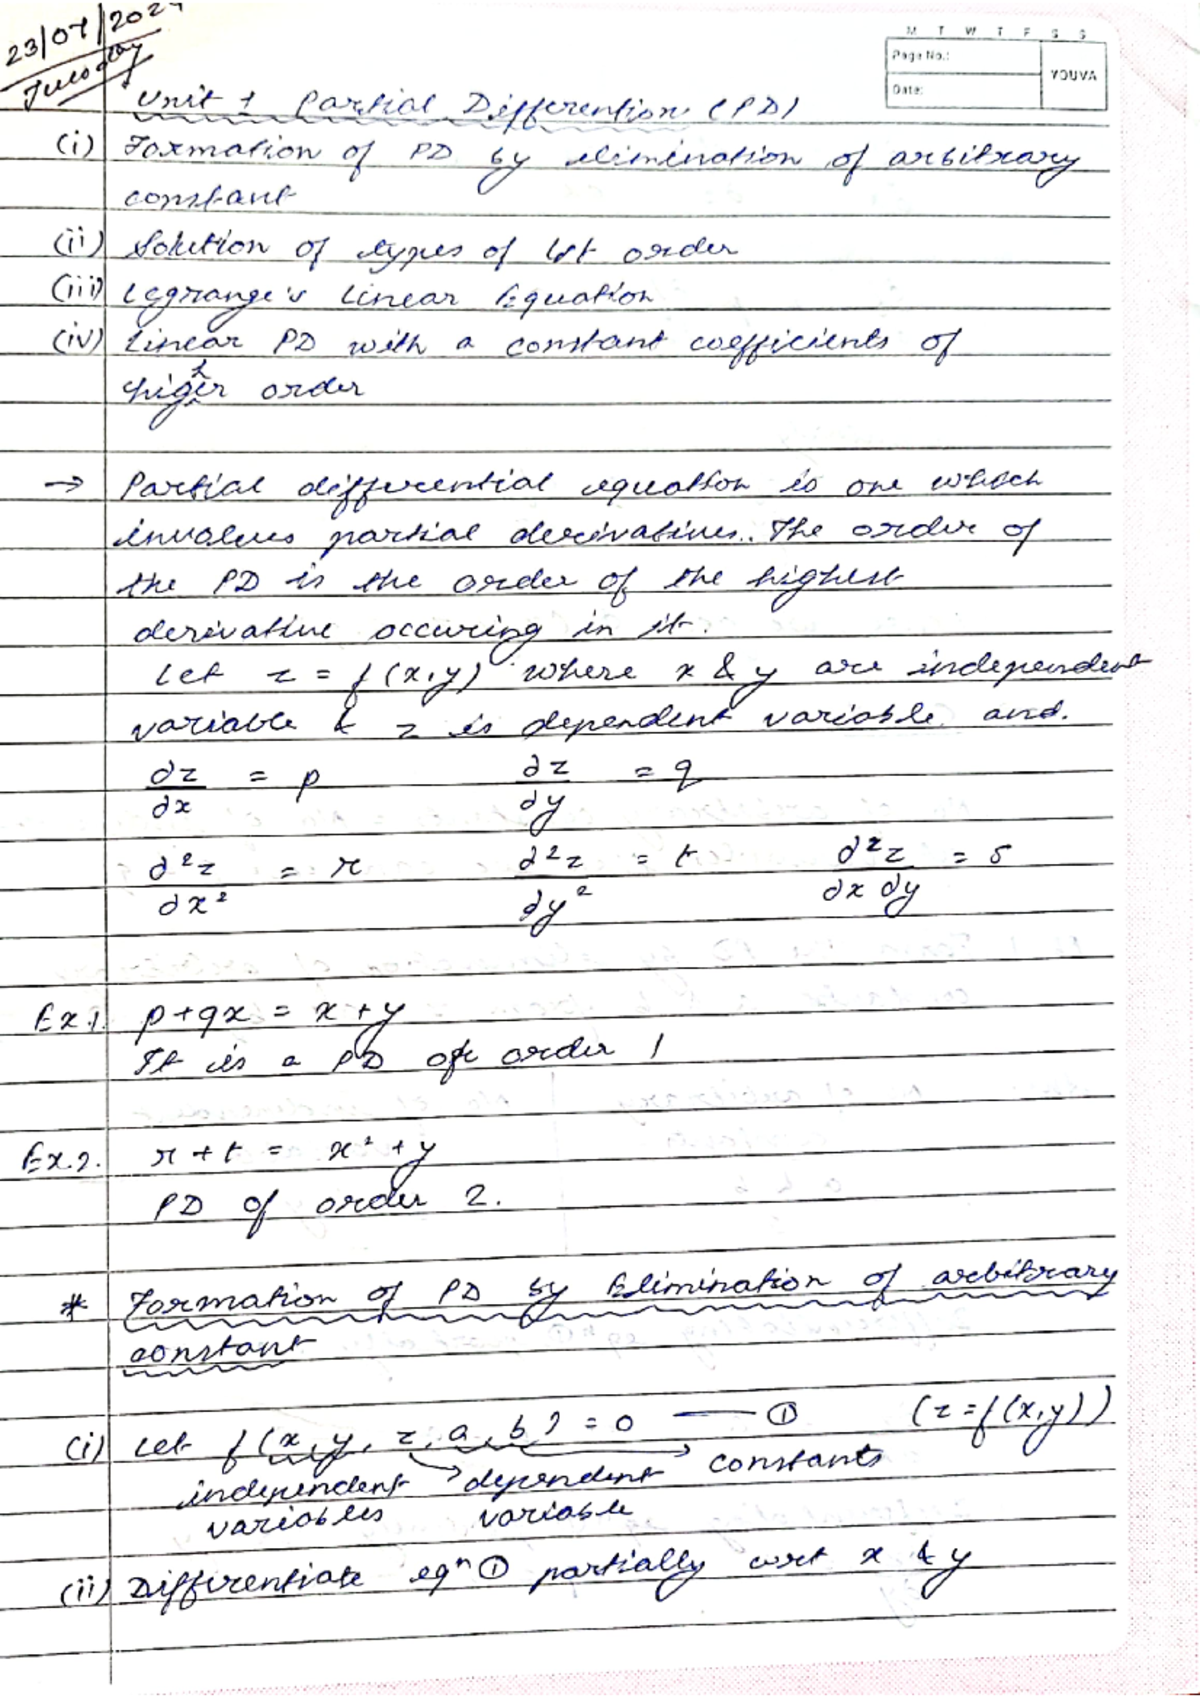 23/07/2024
Tuesday
M T W T F S S
Page No.:
Date:
YOUVA
Unit 1 Partial Differention (PD)
(i) Formation of PD by elimination of arbitrary
constant
(ii) Solution of types of 1st order
(iii) Legrange's Linear Equation
(iv) Linear PD with a constant coefficients of
higher order
→ Partial differential equation is one which
involves partial derivatives. The order of
the PD is the order of the highest
derivative occuring in it.
Let z = f(x,y) where x & y are independent
variable & z is dependent variable and.
∂z/∂x = p ∂z/∂y = q
∂²z/∂x² = r ∂²z/∂y² = t ∂²z/∂x∂y = s
Ex.1. p+qx = x+y
It is a PD of order 1
Ex.2. r+t = x²+y
PD of order 2.
* Formation of PD by Elimination of arbitrary
constant
(i) Let f(x, y, z, a, b) = 0 — ① (z=f(x,y))
independent → dependent → constants
variables variable
(ii) Differentiate eqⁿ ① partially wrt x & y